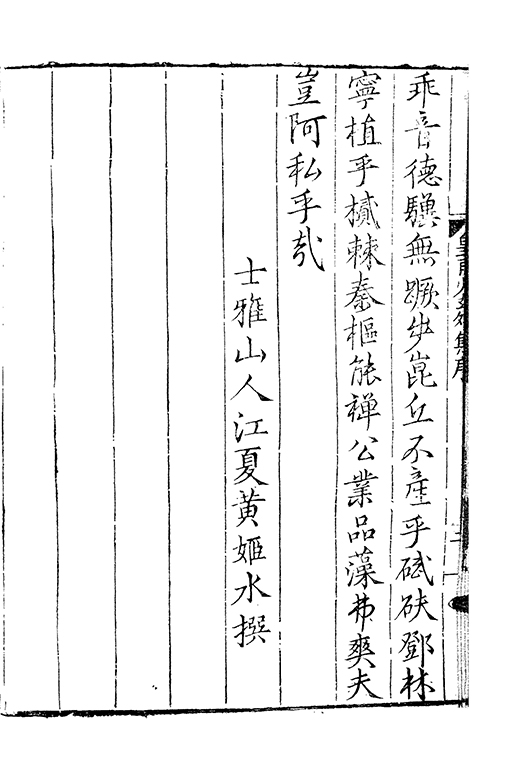 乖音德驥無蹶步崑丘不產乎碔砆鄧林
寧植乎樲棘秦樞能禪公業品藻弗爽夫
豈阿私乎哉
士雅山人江夏黃姬水撰
集序
二